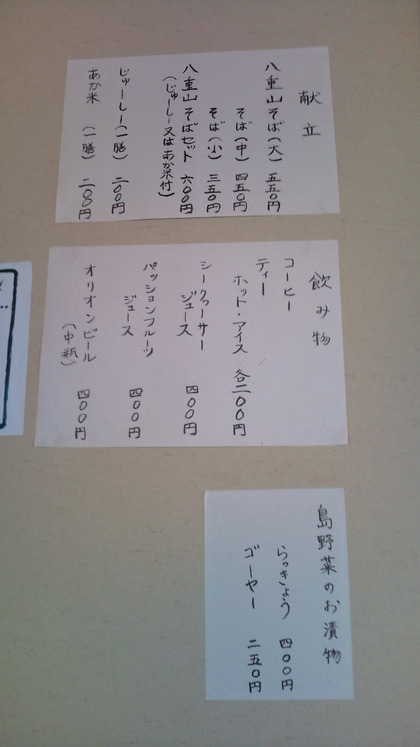 献立
八重山そば(大) 五五0円
そば(中) 四五0円
そば(小) 三五0円
八重山そばセット 六00円
(じゅーしー又はあか米付)
じゅーしー(一膳) 二00円
あか米 (一膳) 二00円
飲み物
コーヒー
ティー
ホット・アイス 各二00円
シークゥーサー
ジュース 四00円
パッションフルーツ
ジュース 四00円
オリオンビール
(中瓶) 四00円
島野菜のお漬物
らっきょう 四00円
ゴーヤー 二五0円